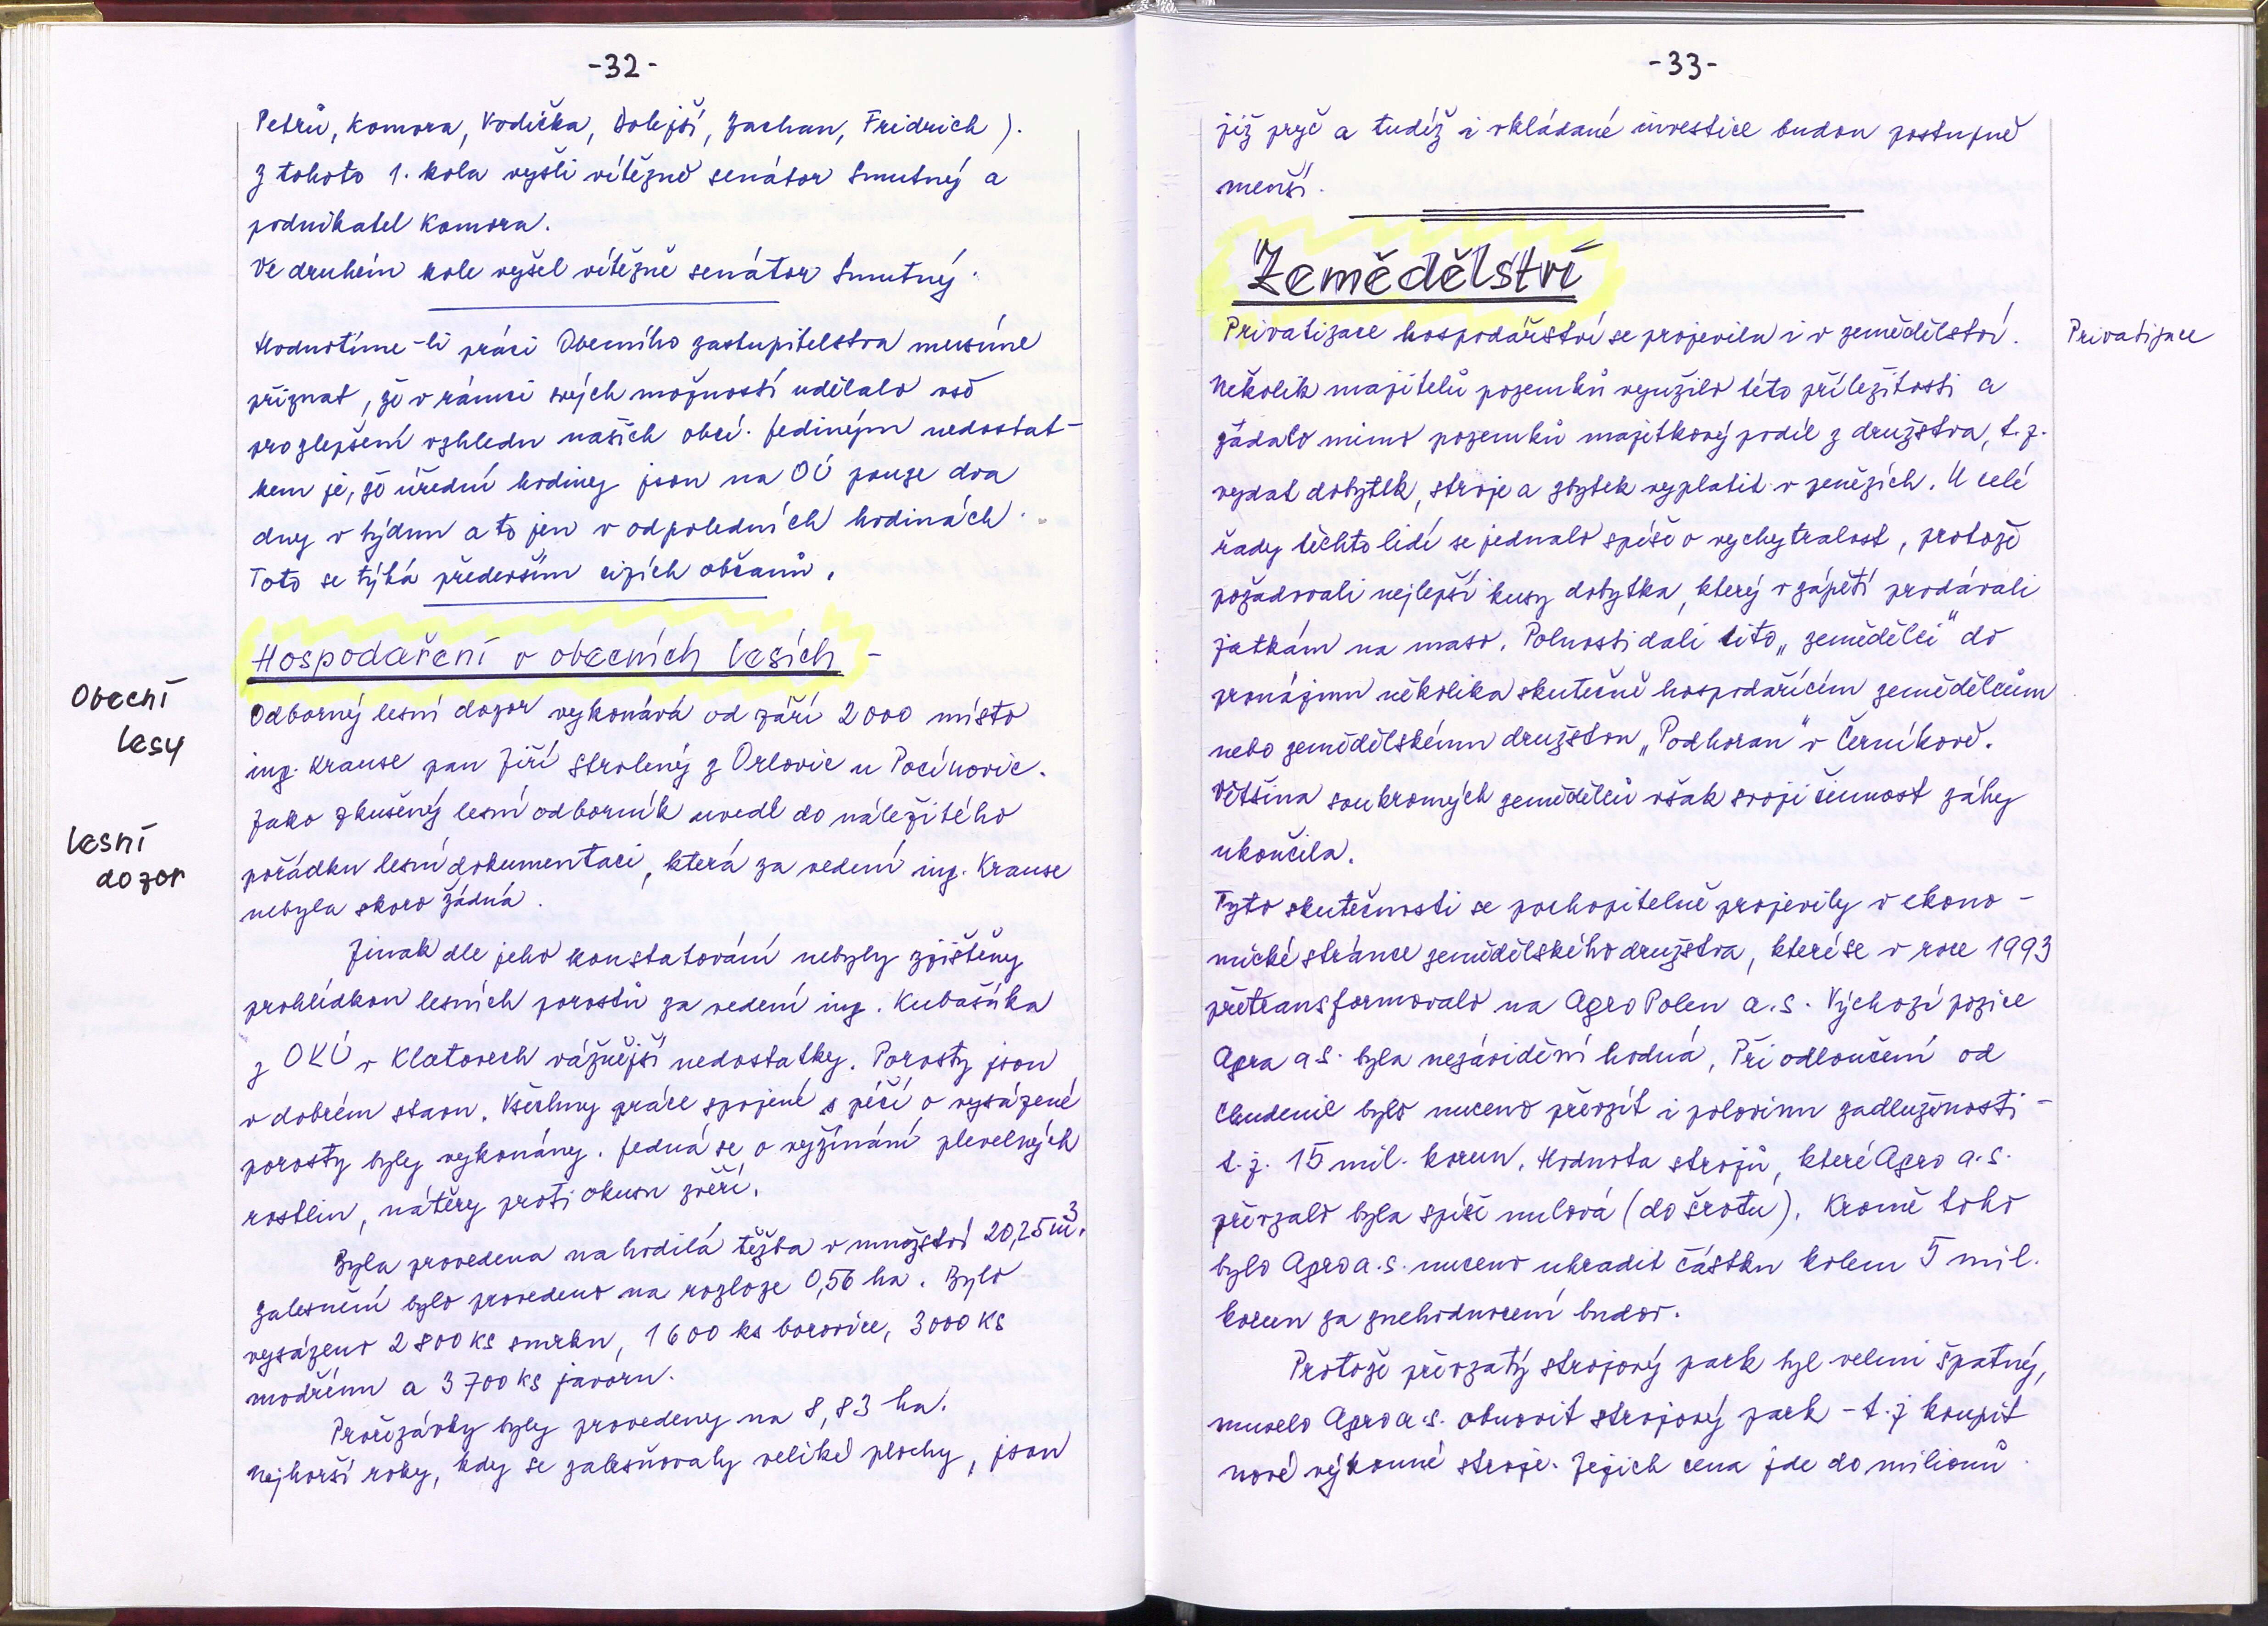 -32-
Petrů, Komora, Vodička, Dolejší, Zachan, Fridrich ).
Z tohoto 1. kola vyšli vítězně senátor Smutný a
podnikatel Komora.
Ve druhém kole vyšel vítězně senátor Smutný.
Hodnotíme-li práci Obecního zastupitelstva musíme
přiznat, že v rámci svých možností udělalo vše
pro zlepšení vzhledu našich obcí. Jediným nedostat-
kem je, že úřední hodiny jsou na OÚ pouze dva
dny v týdnu a to jen v odpoledních hodinách.
Toto se týká především cizích občanů.
Hospodaření v obecních lesích -
Obecní
lesy
Odborný lesní dozor vykonává od září 2000 místo
ing. Krause pan Jiří Strolený z Orlovic u Pocínovic.
Lesní
dozor
Jako zkušený lesní odborník uvedl do náležitého
pořádku lesní dokumentaci, která za vedení ing. Krause
nebyla skoro žádná.
Jinak dle jeho konstatování nebyly zjištěny
prohlídkou lesních porostů za vedení ing. Kubašáka
z OKÚ v Klatovech vážnější nedostatky. Porosty jsou
v dobrém stavu. Všechny práce spojené s péčí o vysázené
porosty byly vykonány. Jedná se o vyžínání plevelných
rostlin, nátěry proti okusu zvěří.
Byla provedena nahodilá těžba v množství 20,25 m³.
Zalesnění bylo provedeno na rozloze 0,56 ha. Bylo
vysázeno 2 800 ks smrku, 1 600 ks borovice, 3000 ks
modřínu a 3 700 ks javoru.
Prořezávky byly provedeny na 8,83 ha.
Nejhorší roky, kdy se zalesňovaly veliké plochy, jsou
-33-
již pryč a tudíž i vkládané investice budou postupně
menší.
Zemědělství
Privatizace hospodářství se projevila i v zemědělství.
Privatizace
Několik majitelů pozemků využilo této příležitosti a
žádalo mimo pozemků majetkový podíl z družstva, t.j.
vydat dobytek, stroje a zbytek vyplatit v penězích. U celé
řady těchto lidí se jednalo spíše o vychytralost, protože
požadovali nejlepší kusy dobytka, který v zápětí prodávali
jatkám na maso. Polnosti dali tito „zemědělci" do
pronájmu několika skutečně hospodařícím zemědělcům
nebo zemědělskému družstvu „Podhoran" v Černíkově.
Většina soukromých zemědělců však svoji činnost záhy
ukončila.
Tyto skutečnosti se pochopitelně projevily v ekono-
mické stránce zemědělského družstva, které se v roce 1993
přetransformovalo na AgroPolen a.s. Výchozí pozice
Agra a.s. byla nezávidění hodná. Při odloučení od
Chudenic bylo nuceno převzít i polovinu zadluženosti -
t.j. 15 mil. korun. Hodnota strojů, které Agro a.s.
převzalo byla spíše nulová (do šrotu). Kromě toho
bylo Agro a.s. nuceno uhradit částku kolem 5 mil.
korun za znehodnocení budov.
Protože převzatý strojový park byl velmi špatný,
muselo Agro a.s. obnovit strojový park - t.j koupit
nové výkonné stroje. Jejich cena jde do milionů.